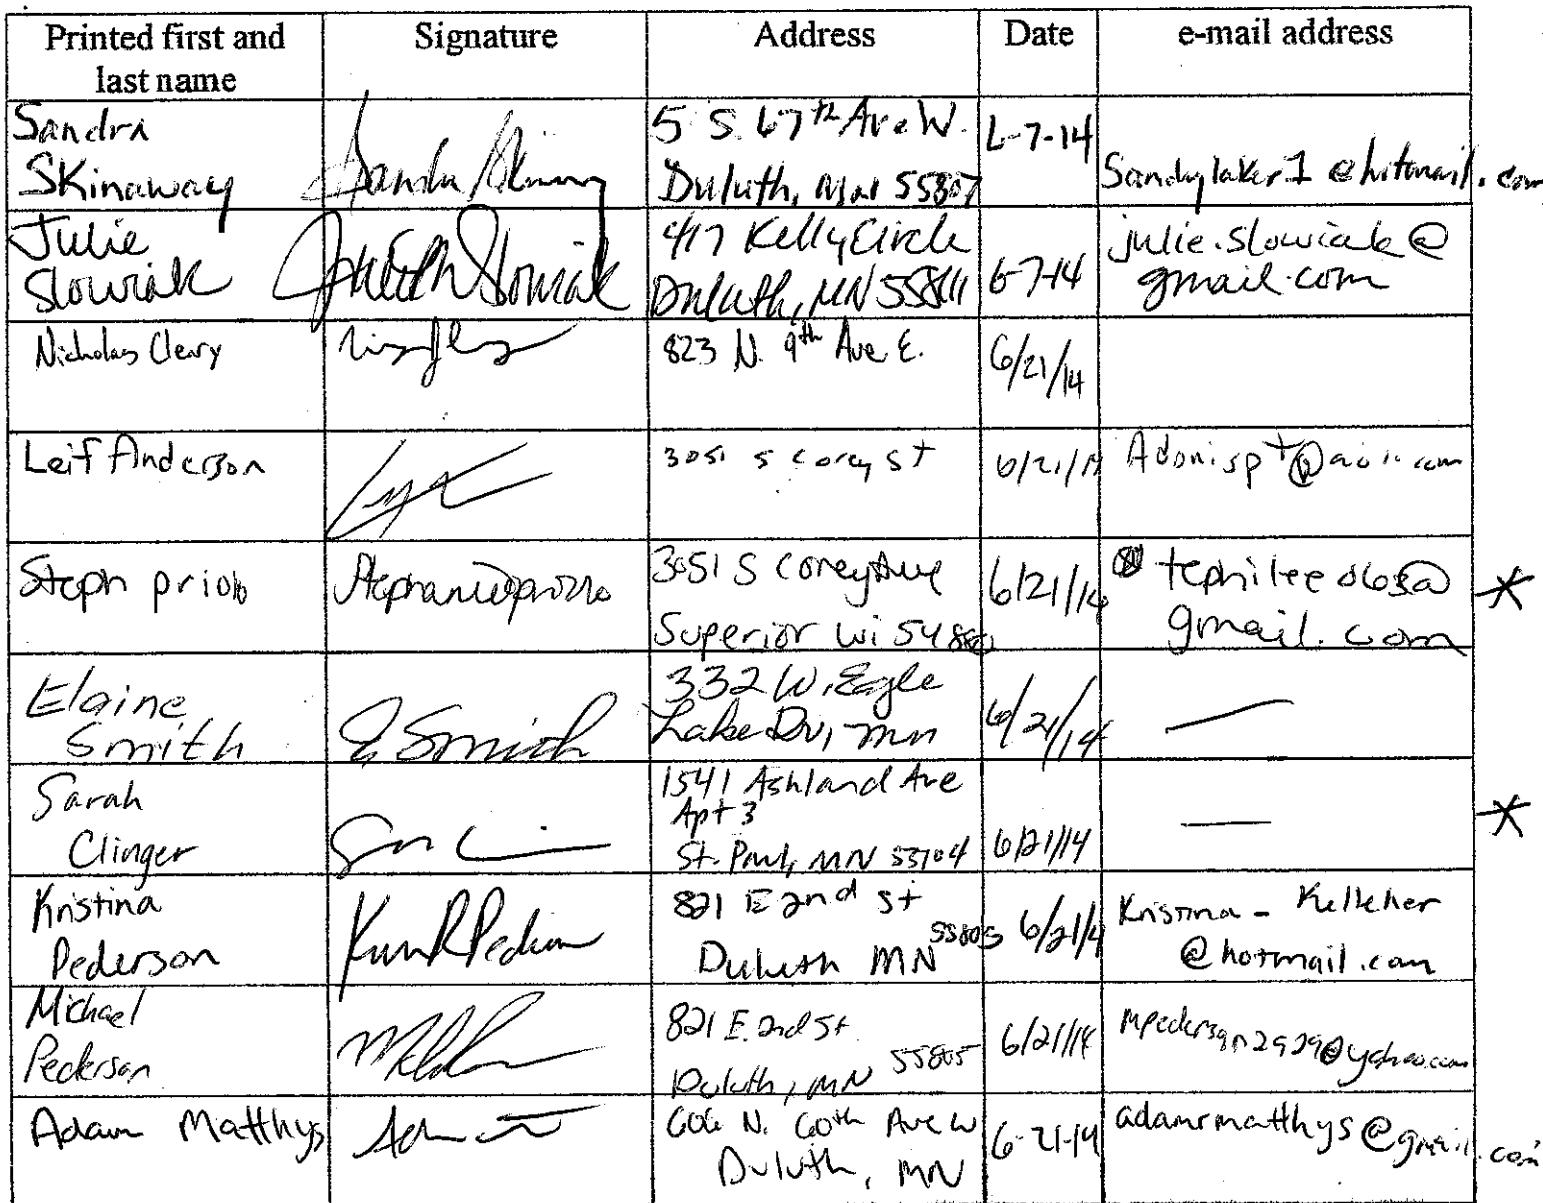 Printed first and
last name
Signature
Address
Date
e-mail address
Sandra
Skinaway
5 S. 67th Ave W.
Duluth, MN 55807
6-7-14
Sandylaker1@hotmail.com
Julie
Slowiak
417 Kelly Circle
Duluth, MN 55811
6-7-14
julie.slowiak@
gmail.com
Nicholas Cleary
823 N. 9th Ave E.
6/21/14
Leif Anderson
3051 S Corey St
6/21/14
Steph priolo
3051 S Corey Ave
Superior Wi 54880
6/21/14
gmail.com
Elaine
Smith
E Smith
332 W. Eagle
Lake Dr, mn
6/21/14
—
Sarah
Clinger
1541 Ashland Ave
Apt 3
St. Paul, MN 55104
6/21/14
—
Kristina
Pederson
821 E 2nd St
55805
Duluth MN
6/21/14
Kristina_Kelleher
@hotmail.com
Michael
Pederson
821 E. 2nd St
55805
Duluth, MN
6/21/14
mpederson2929@yahoo.com
Adam Matthys
606 N. 60th Ave W
Duluth, MN
6-21-14
adamrmatthys@gmail.com